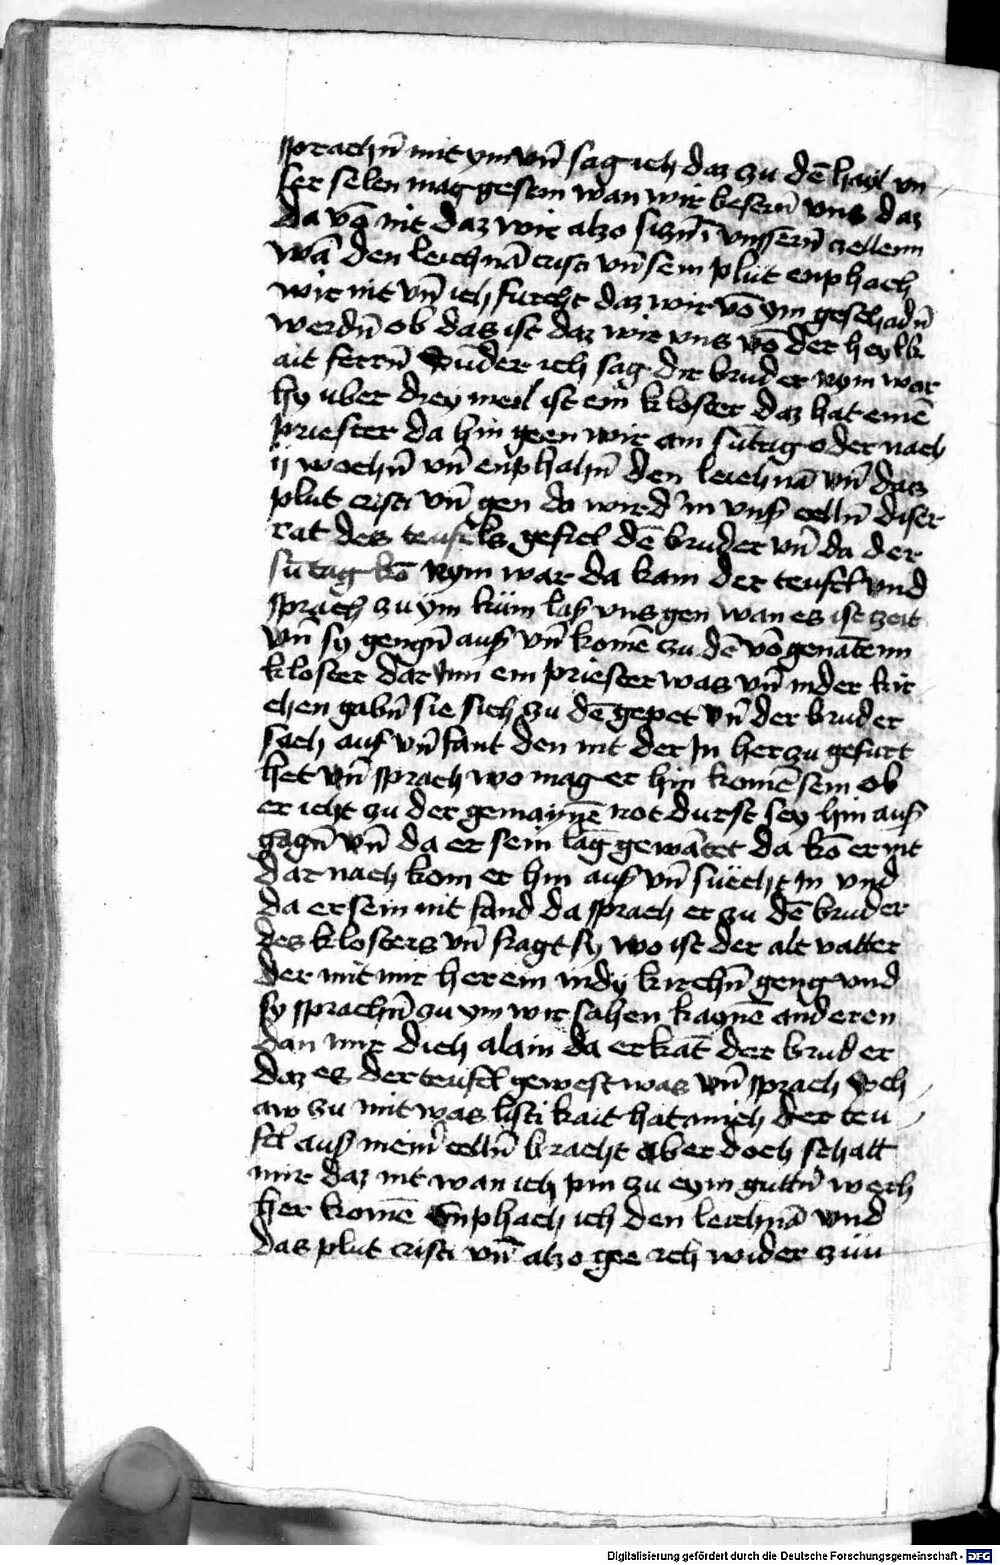 sprachn̄ mit ym vn̄ sag ich daz zu dē hail vn
ser selen mag geston wan wir besern̄ vns daz
da vō nit daz wir alzo siczn̄ ī vnssern̄ zellenn
wā den leichnā cristi vn̄ sein plut enphach
wir nit vn̄ ich furcht daz wir vō ym geschadn̄
werdn̄ ob das ist daz wir vns vō der heylk
ait ferrn̄ Sunder ich sag dir bruder nym war
hy uber drey meil ist ein kloster daz hat einē
priester da hin geen wir am sūtag oder nach
ij wochn̄ vn̄ enphahn̄ den leichnā vn̄ daz
plut cristi vn̄ gen do wird̾ in vnß celln̄ diser
rat des teufels gefiel dē bruder vn̄ da der
sūtag kō nym war da kam der teufel vnd
sprach zu ym kum laß vns gen wan es ist zeit
vn̄ sy gengn̄ auß vn̄ komē zu dē vō genātenn
kloster dar Inn ein priester was vn̄ in der kir
chen gabn̄ sie sich zu dē gepet vn̄ der bruder
sach auf vn̄ fant den nit der In her zu gefurt
het vn̄ sprach wo mag er hin komē sein ob
er icht zu der gemaynē notdurft sey hin auß
gāgn̄ vn̄ da er sein lāg gewartet da kō er nit
dar nach kom er hin auß vn̄ sucht In vnd
da er sein nit fand da sprach er zu dē bruder
des klosters vn̄ fragt sy wo ist der alt vatter
der mit mir herein in dy kirchn̄ geng vnd
sy sprachn̄ zu ym wir sahen kaynē anderen
dan nur dich alain da erkāt der bruder
daz es der teufel gewest was vn̄ sprach sech
aw zu mit was listikait hat mich der teu
fel auß mein̄ celln̄ bracht aber doch schatt
mir daz nit wan ich pin zu eym guttn̄ werch
her komē Enphach ich den leichnā vnd
das plut cristi vn̄ alzo gee ich wider zuu
Digitalisierung gefördert durch die Deutsche Forschungsgemeinschaft - DFG